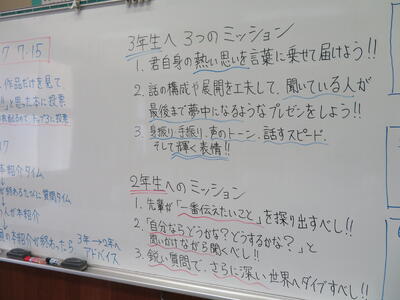 7 7.15
作品だけを見て、
と思った本に投票
本紹介タイム
が終わるたびに質問タイム
の人が本紹介
の本紹介が終わったら
3年→2年へ
アドバイス
3年生へ 3つのミッション
1. 君自身の熱い思いを言葉に乗せて届けよう!!
2. 話の構成や展開を工夫して、聞いている人が
最後まで夢中になるようなプレゼンをしよう!!
3. 身振り、手振り、声のトーン、話すスピード、
そして輝く表情!!
2年生へのミッション
1. 先輩が「一番伝えたいこと」を探り出すべし!!
2. 「自分ならどうかな?どうするかな?」と
問いかけながら聞くべし!!
3. 鋭い質問で、さらに深い世界へダイブすべし!!